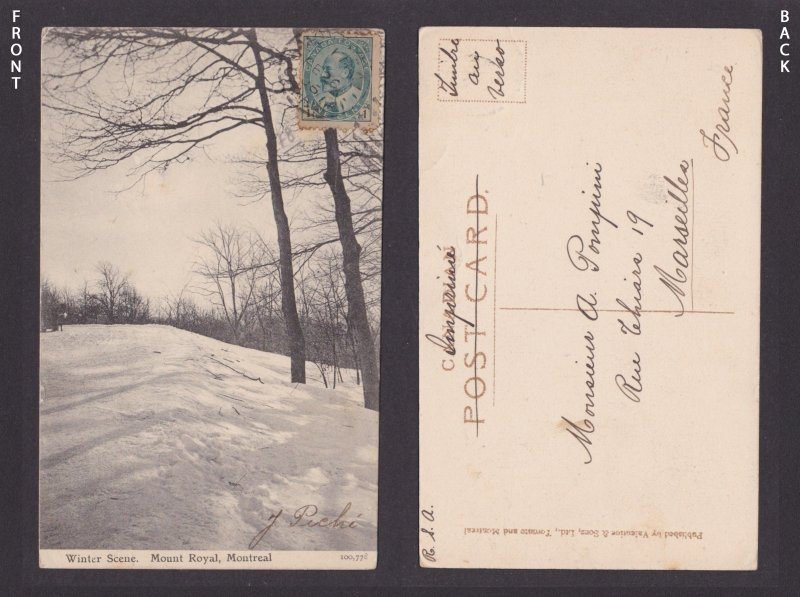 FRONT
BACK
CANADA POSTAGE
1
J Pichi
Winter Scene. Mount Royal, Montreal
100,778
Timbre
au
verso
Imprimé
POST CARD.
Monsieur A. Pompini
Rue Thiars 19
Marseille
France
R. S. A.
Published by Valentine & Sons, Ltd., Toronto and Montreal